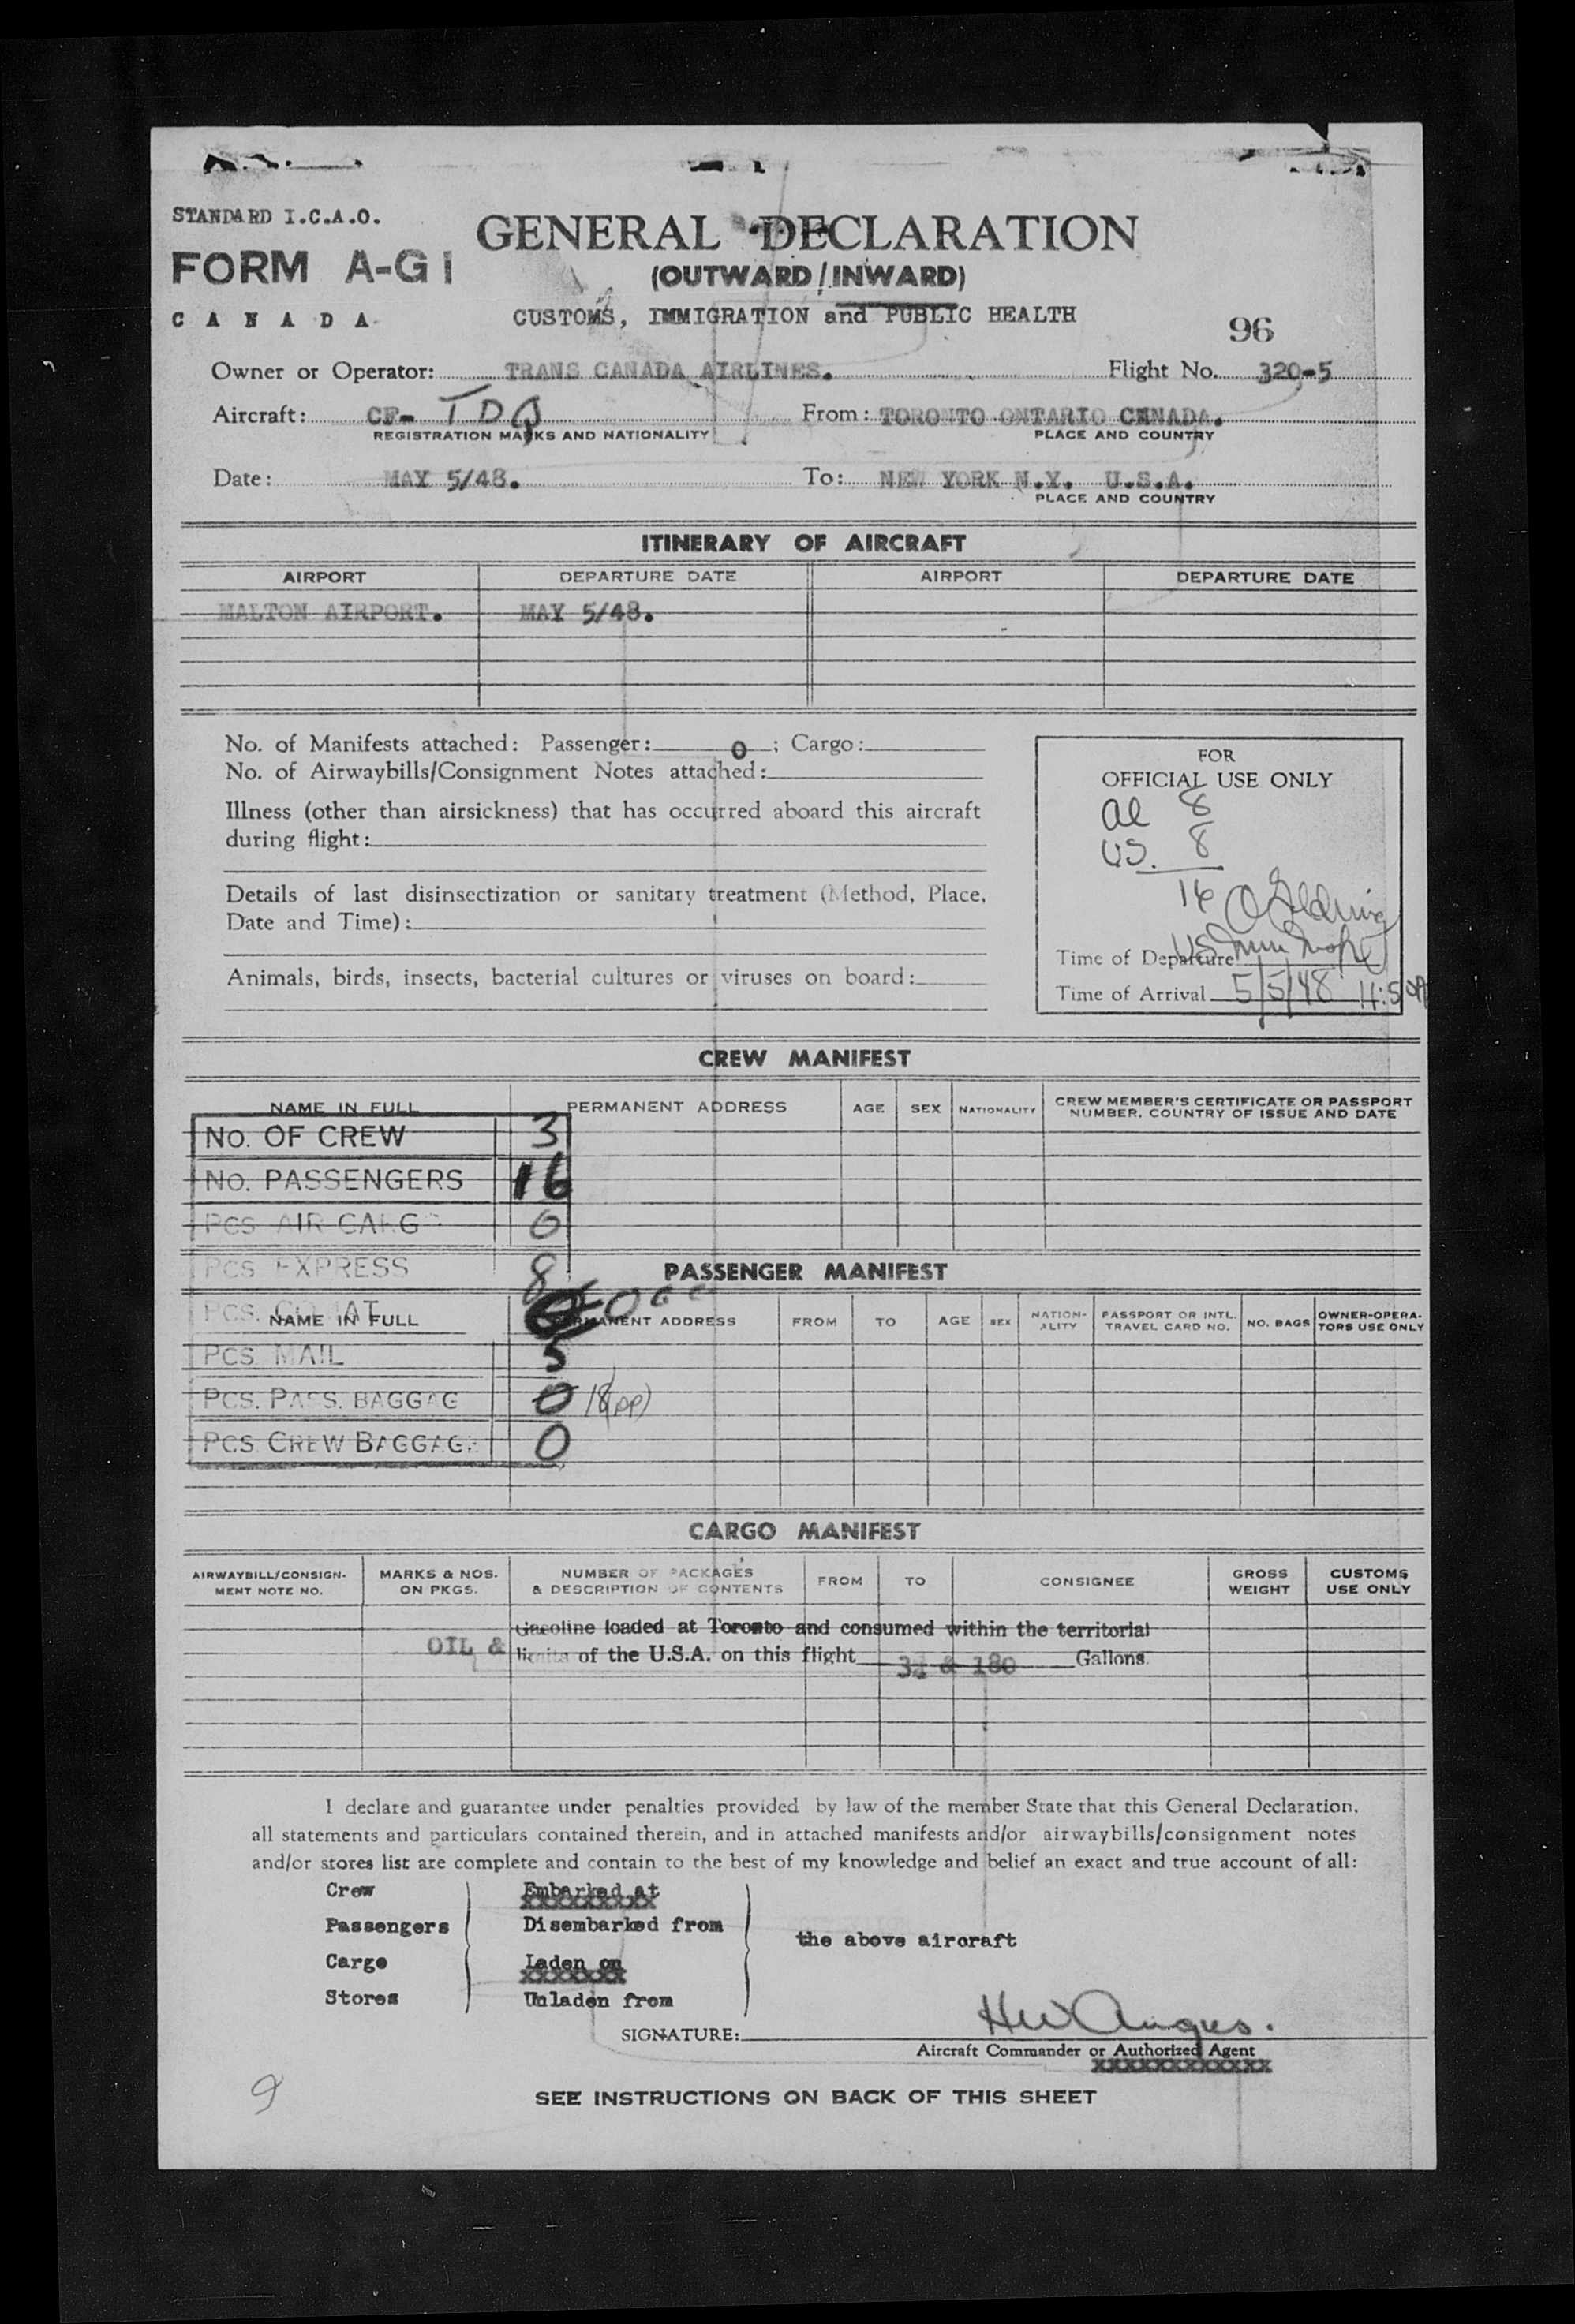 STANDARD I.C.A.O.
FORM A-G1
CANADA
GENERAL DECLARATION
(OUTWARD/INWARD)
CUSTOMS, IMMIGRATION and PUBLIC HEALTH
96
Owner or Operator: TRANS CANADA AIRLINES. Flight No. 320-5
Aircraft: CF- TDQ From: TORONTO ONTARIO CENADA.
REGISTRATION MARKS AND NATIONALITY PLACE AND COUNTRY
Date: MAY 5/48. To: NEW YORK N.Y. U.S.A.
PLACE AND COUNTRY
ITINERARY OF AIRCRAFT
AIRPORT DEPARTURE DATE AIRPORT DEPARTURE DATE
MALTON AIRPORT. MAY 5/48.
No. of Manifests attached: Passenger: 0 ; Cargo:
No. of Airwaybills/Consignment Notes attached:
Illness (other than airsickness) that has occurred aboard this aircraft
during flight:
Details of last disinsectization or sanitary treatment (Method, Place,
Date and Time):
Animals, birds, insects, bacterial cultures or viruses on board:
FOR
OFFICIAL USE ONLY
al 8
US. 8
16
US Imm
Time of Departure
Time of Arrival 5/5/48 11:50
CREW MANIFEST
NAME IN FULL PERMANENT ADDRESS AGE SEX NATIONALITY CREW MEMBER'S CERTIFICATE OR PASSPORT
NUMBER, COUNTRY OF ISSUE AND DATE
No. OF CREW 3
No. PASSENGERS 16
Pcs AIR CARGO 0
Pcs EXPRESS 8
PASSENGER MANIFEST
PCS. COMAT 0
NAME IN FULL PERMANENT ADDRESS FROM TO AGE SEX NATION-
ALITY PASSPORT OR INTL.
TRAVEL CARD NO. NO. BAGS OWNER-OPERA-
TORS USE ONLY
PCS. MAIL 5
PCS. PASS. BAGGAG 0 18(PP)
PCS CREW BAGGAGE 0
CARGO MANIFEST
AIRWAYBILL/CONSIGN-
MENT NOTE NO. MARKS & NOS.
ON PKGS. NUMBER OF PACKAGES
& DESCRIPTION OF CONTENTS FROM TO CONSIGNEE GROSS
WEIGHT CUSTOMS
USE ONLY
Gasoline loaded at Toronto and consumed within the territorial
OIL & limits of the U.S.A. on this flight & 180 Gallons.
I declare and guarantee under penalties provided by law of the member State that this General Declaration,
all statements and particulars contained therein, and in attached manifests and/or airwaybills/consignment notes
and/or stores list are complete and contain to the best of my knowledge and belief an exact and true account of all:
Crew Embarked at
Passengers Disembarked from
the above aircraft
Cargo Laden on
Stores Unladen from
SIGNATURE: HW Angus.
Aircraft Commander or Authorized Agent
XXXXXXXXXXXXX
9
SEE INSTRUCTIONS ON BACK OF THIS SHEET